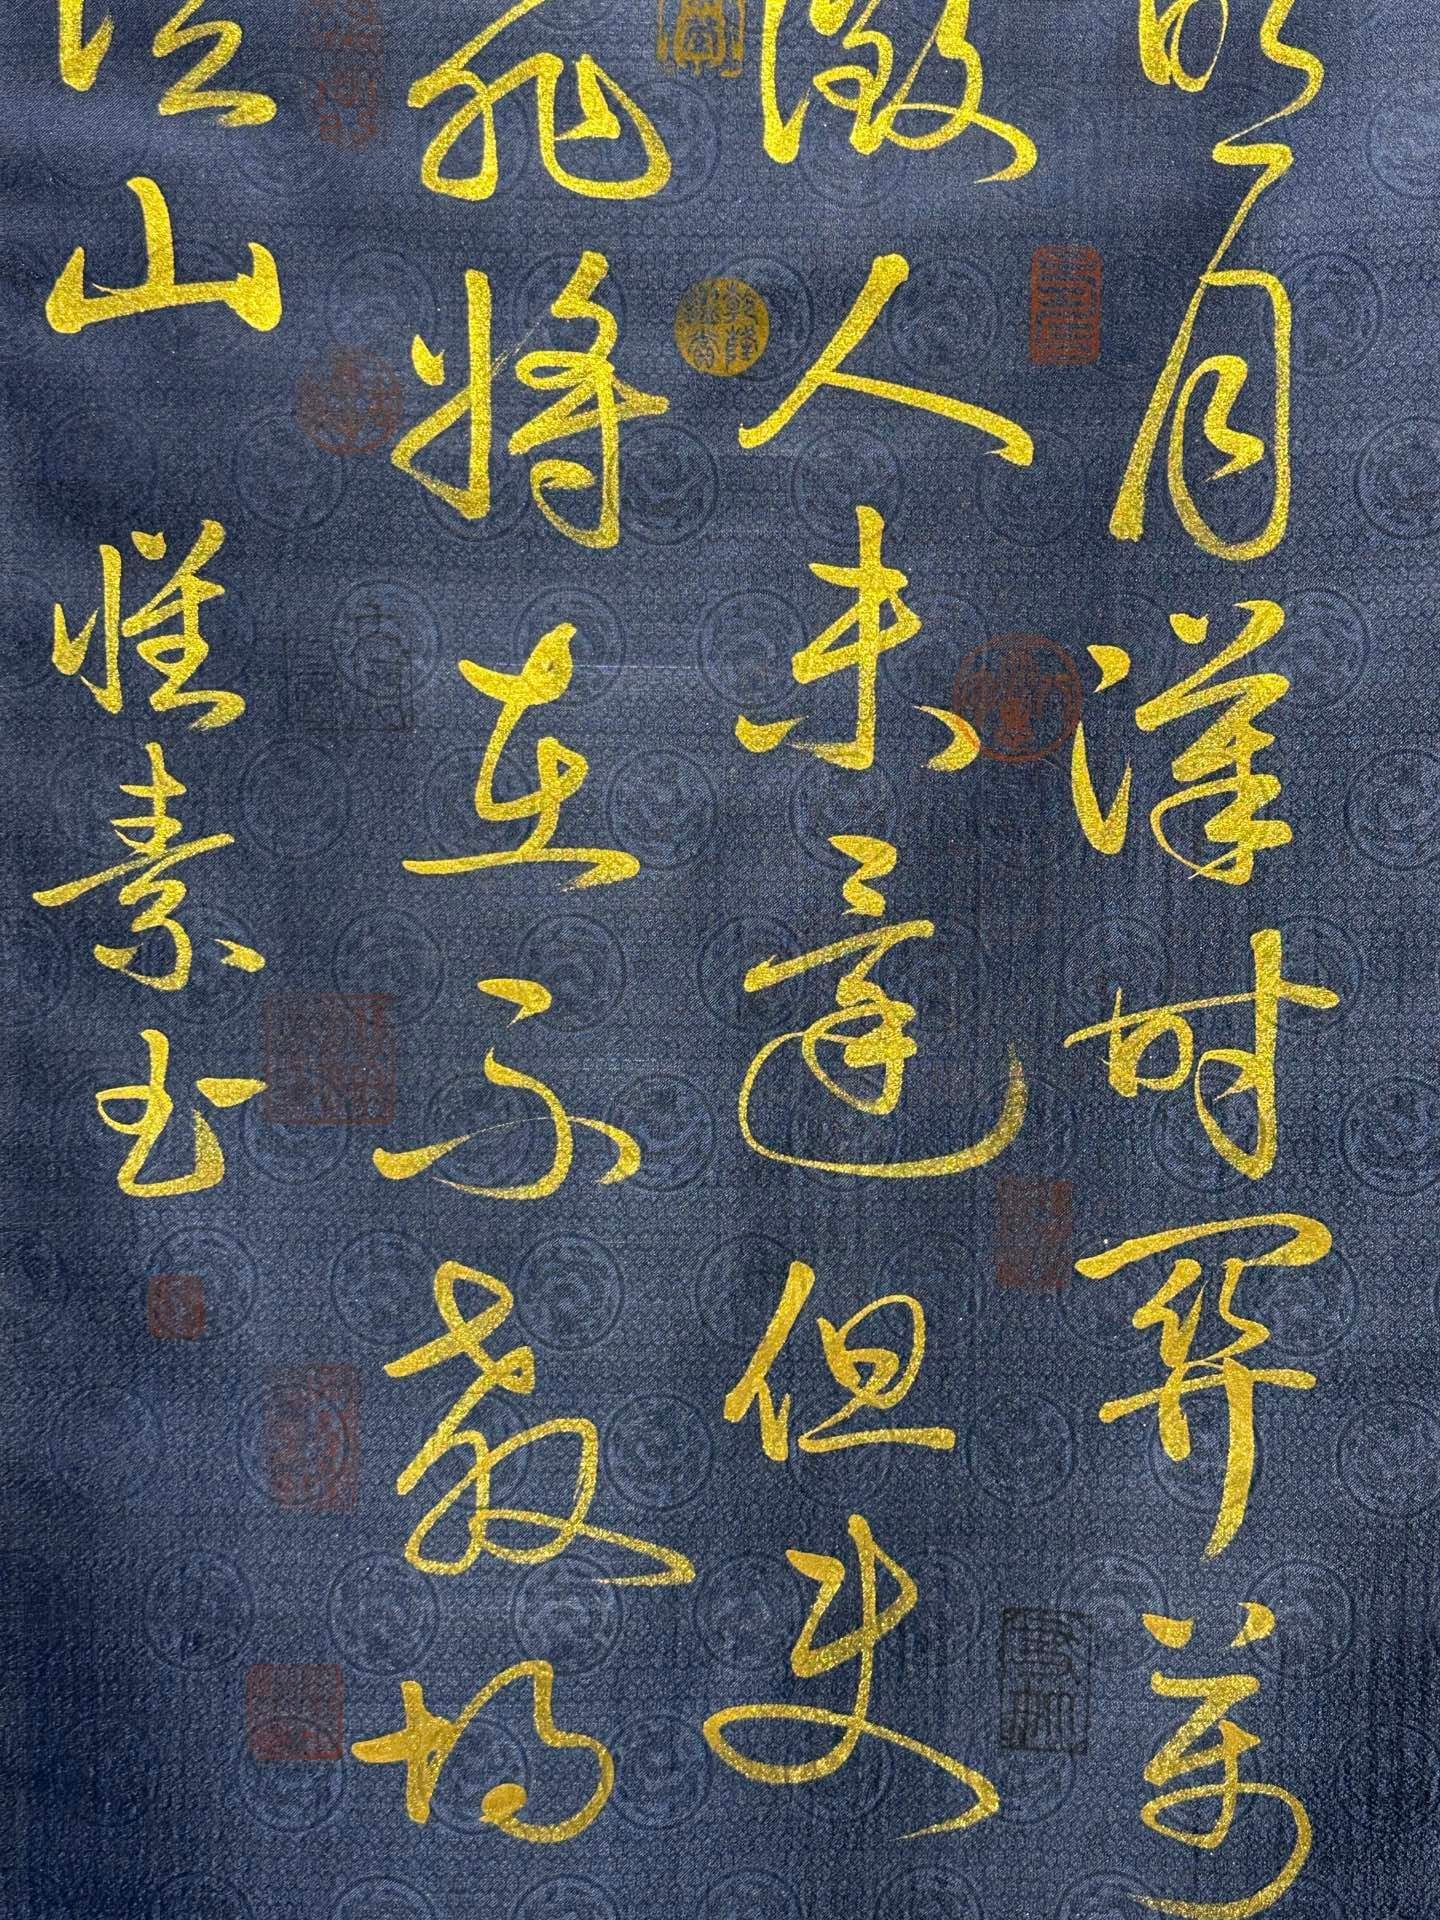 明月漢時關萬
徵人未還但使
飛將在不教胡
陰山 懷素書